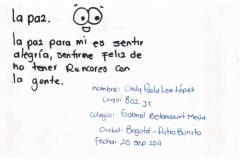 la paz.
la paz para mi es sentir
alegria, sentirme feliz de
no tener Rencores con
la gente.
nombre: Cindy Paola Lee López
Curso: 802. JT
Colegio: Gabriel Betancourt Mejia
Ciudad: Bogotá - Patio Bonito
Fecha: 28 sep 2011